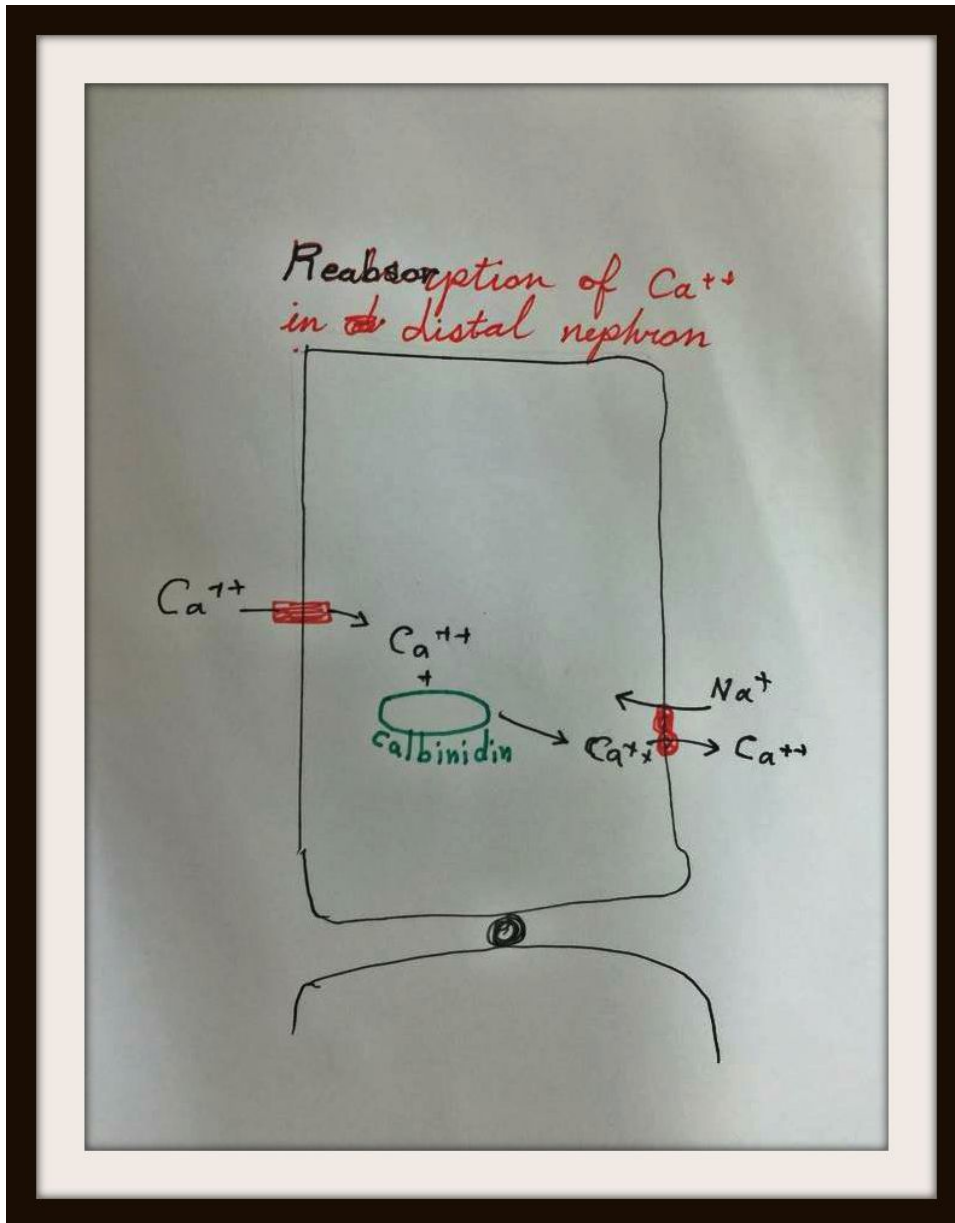 Reabsorption of Ca++
in distal nephron
Ca++
Ca++
+
calbinidin
Na+
Ca++
Ca++